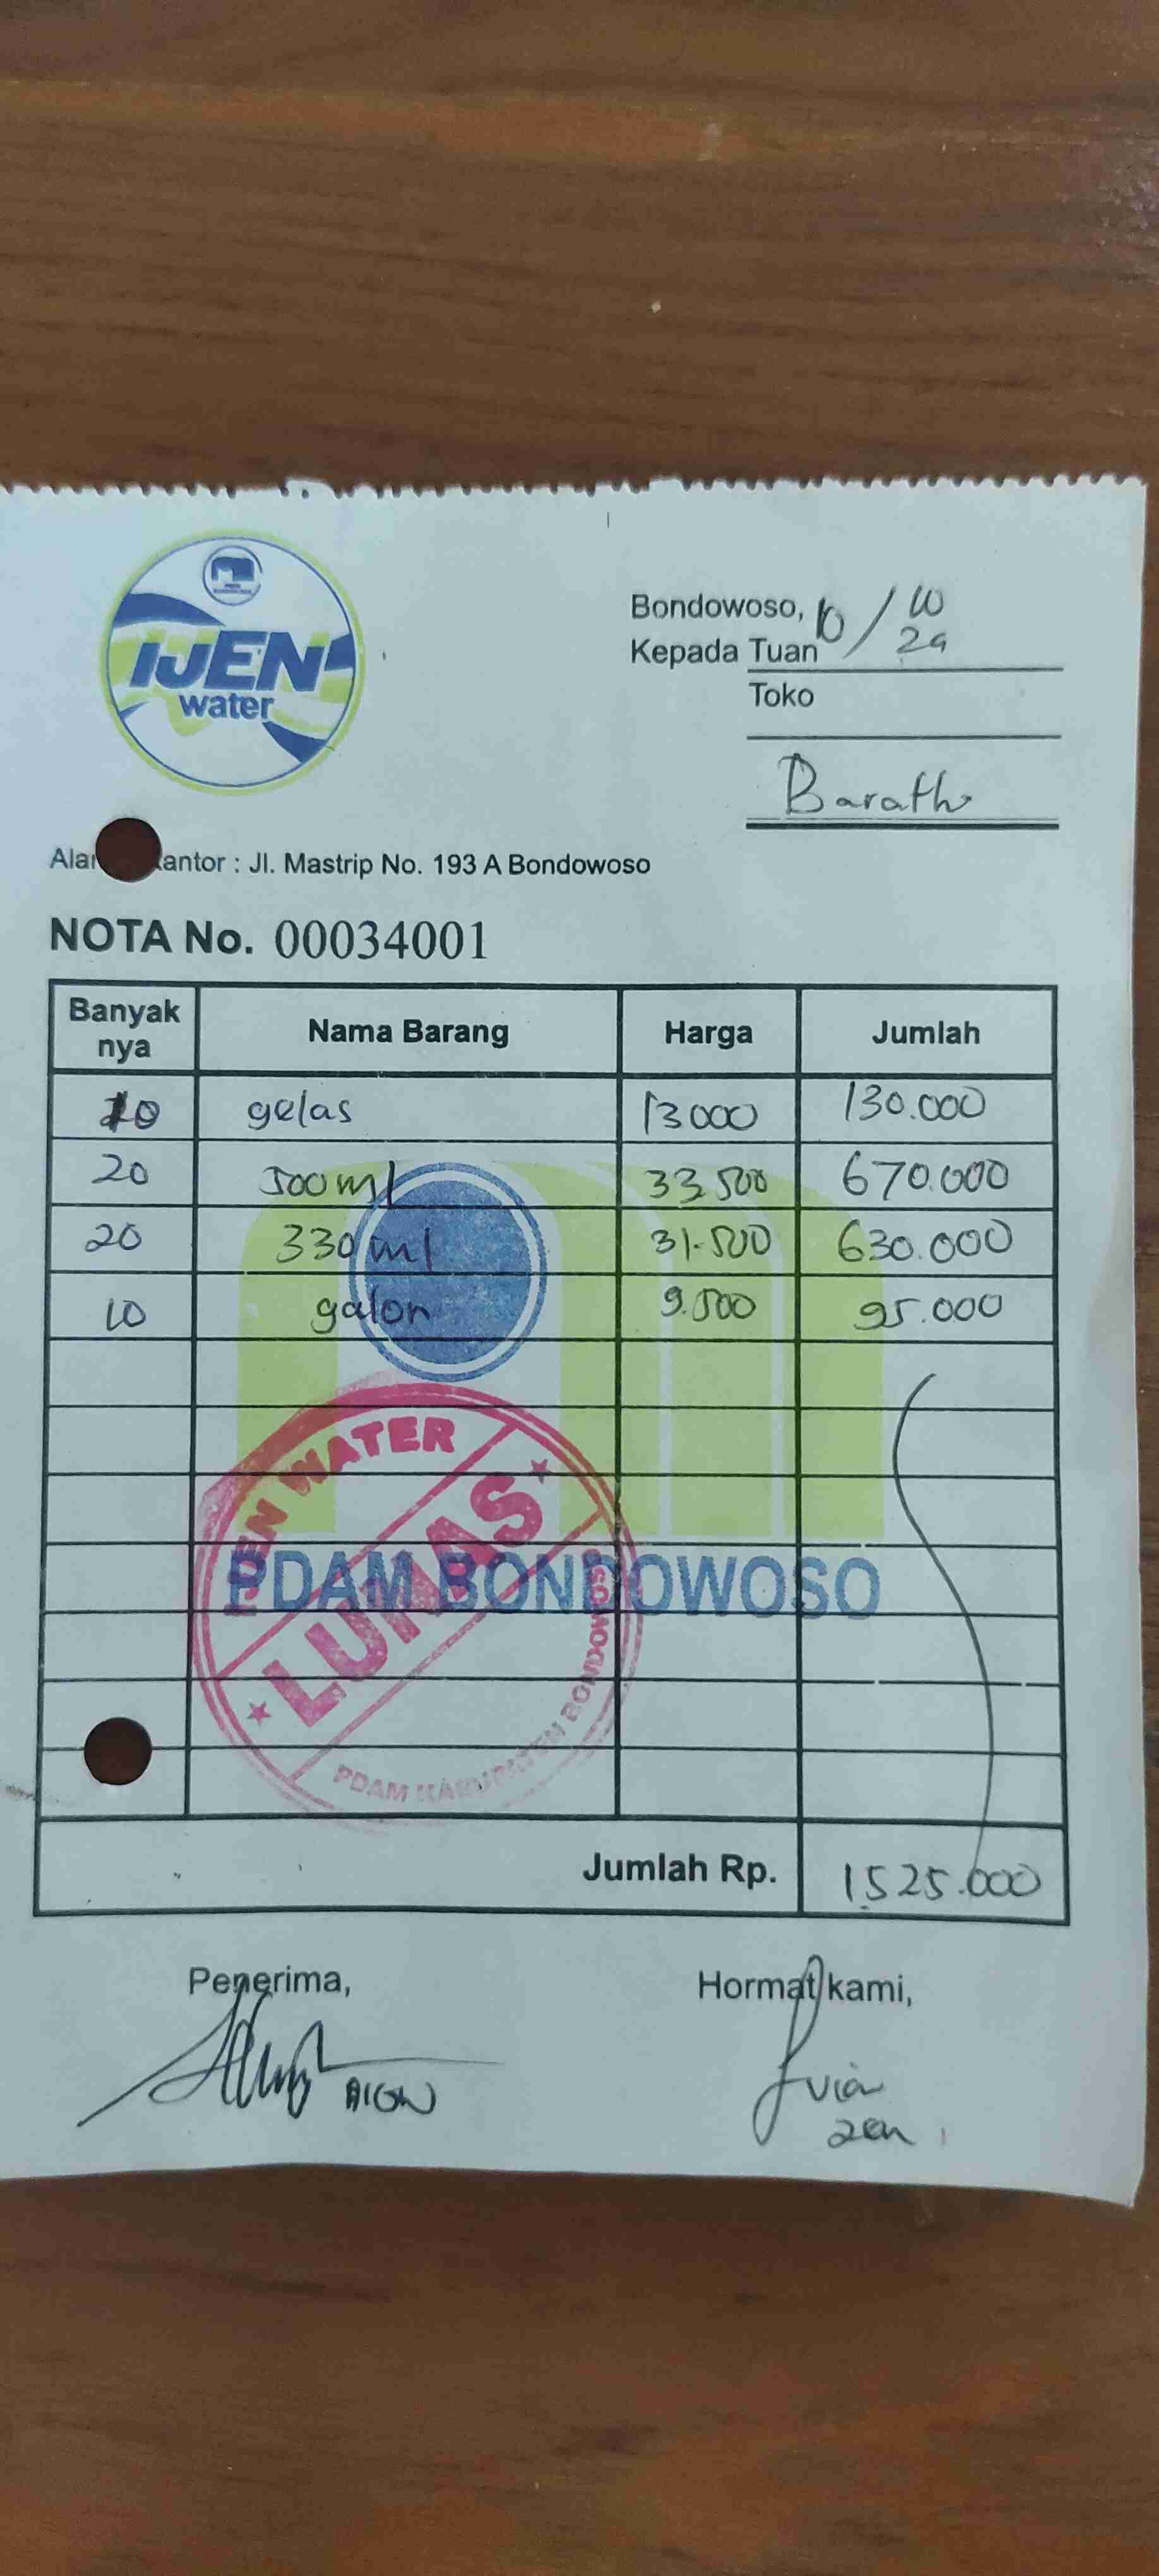 IJEN
water
Bondowoso, 10/10
24
Kepada Tuan
Toko
Barath
Kantor : Jl. Mastrip No. 193 A Bondowoso
NOTA No. 00034001
Banyak nya Nama Barang Harga Jumlah
10 gelas 13000 130.000
20 500ml 33.500 670.000
20 330 ml 31.500 630.000
10 galon 9.500 95.000
IJEN WATER
LUNAS
PDAM KABUPATEN BONDOWOSO
PDAM BONDOWOSO
Jumlah Rp. 1.525.000
Penerima, Hormat kami,